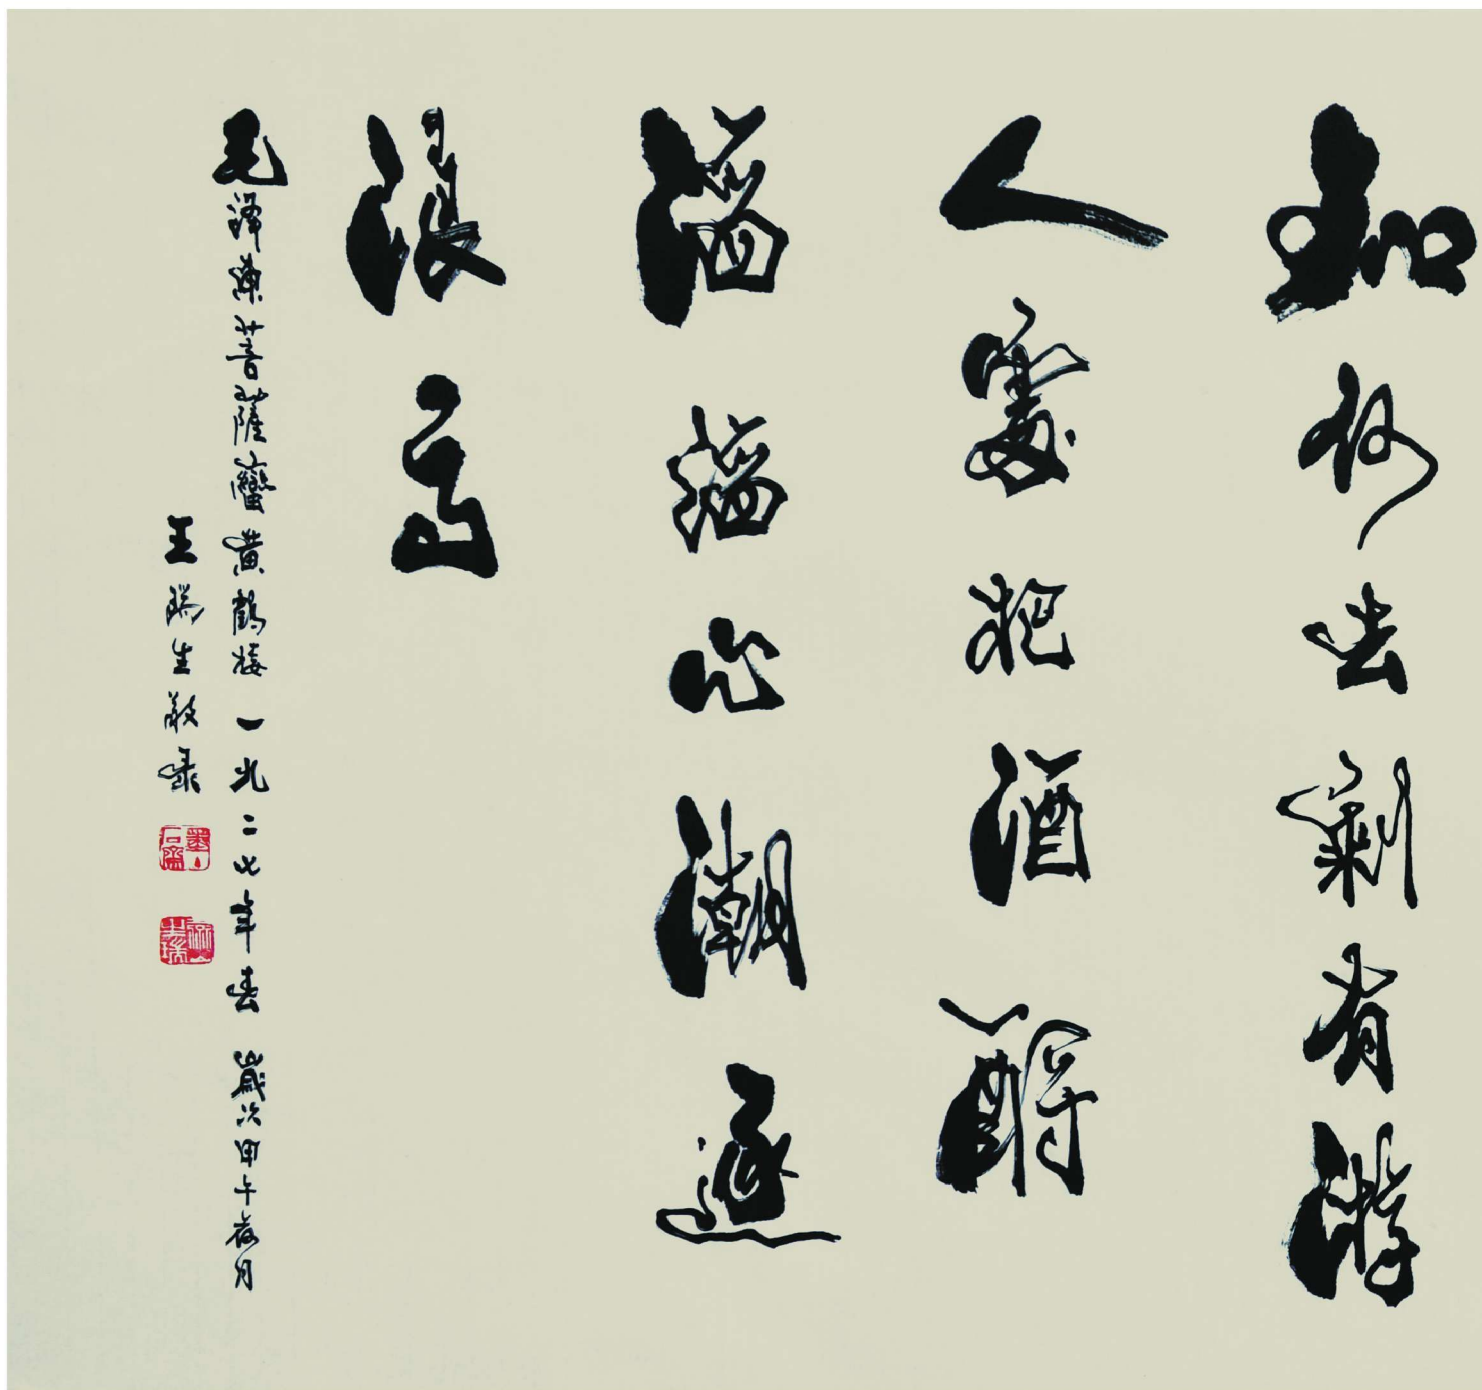 知何去剩有游
人處把酒酹
滔滔心潮逐
浪高
毛澤東菩薩蠻黃鶴楼 一九二七年春 歲次甲午荷月
王瑞生敬录